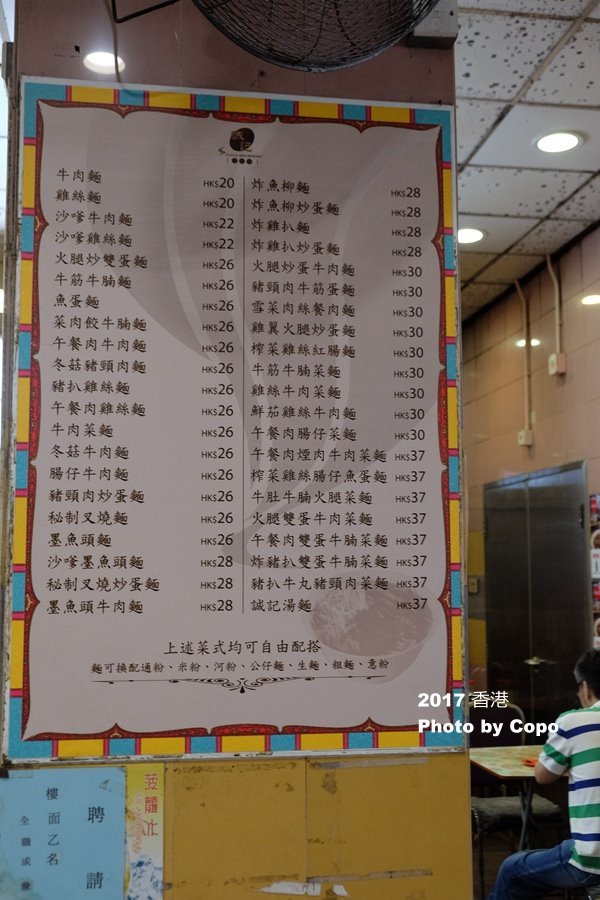 牛肉麵 HK$20
雞絲麵 HK$20
沙嗲牛肉麵 HK$22
沙嗲雞絲麵 HK$22
火腿炒雙蛋麵 HK$26
牛筋牛腩麵 HK$26
魚蛋麵 HK$26
菜肉餃牛腩麵 HK$26
午餐肉牛肉麵 HK$26
冬菇豬頸肉麵 HK$26
豬扒雞絲麵 HK$26
午餐肉雞絲麵 HK$26
牛肉菜麵 HK$26
冬菇牛肉麵 HK$26
腸仔牛肉麵 HK$26
豬頸肉炒蛋麵 HK$26
秘制叉燒麵 HK$26
墨魚頭麵 HK$26
沙嗲墨魚頭麵 HK$28
秘制叉燒炒蛋麵 HK$28
墨魚頭牛肉麵 HK$28
炸魚柳麵 HK$28
炸魚柳炒蛋麵 HK$28
炸雞扒麵 HK$28
炸雞扒炒蛋麵 HK$28
火腿炒蛋牛肉麵 HK$30
豬頸肉牛筋蛋麵 HK$30
雪菜肉絲餐肉麵 HK$30
雞翼火腿炒蛋麵 HK$30
榨菜雞絲紅腸麵 HK$30
牛筋牛腩菜麵 HK$30
雞絲牛肉菜麵 HK$30
鮮茄雞絲牛肉麵 HK$30
午餐肉腸仔菜麵 HK$30
午餐肉煙肉牛肉菜麵 HK$37
榨菜雞絲腸仔魚蛋麵 HK$37
牛肚牛腩火腿菜麵 HK$37
火腿雙蛋牛肉菜麵 HK$37
午餐肉雙蛋牛腩菜麵 HK$37
炸豬扒雙蛋牛腩菜麵 HK$37
豬扒牛丸豬頸肉菜麵 HK$37
誠記湯麵 HK$37
上述菜式均可自由配搭
麵可換配通粉、米粉、河粉、公仔麵、生麵、粗麵、意粉
2017 香港
Photo by Copo
聘請
樓面乙名
全職或兼
菠蘿冰